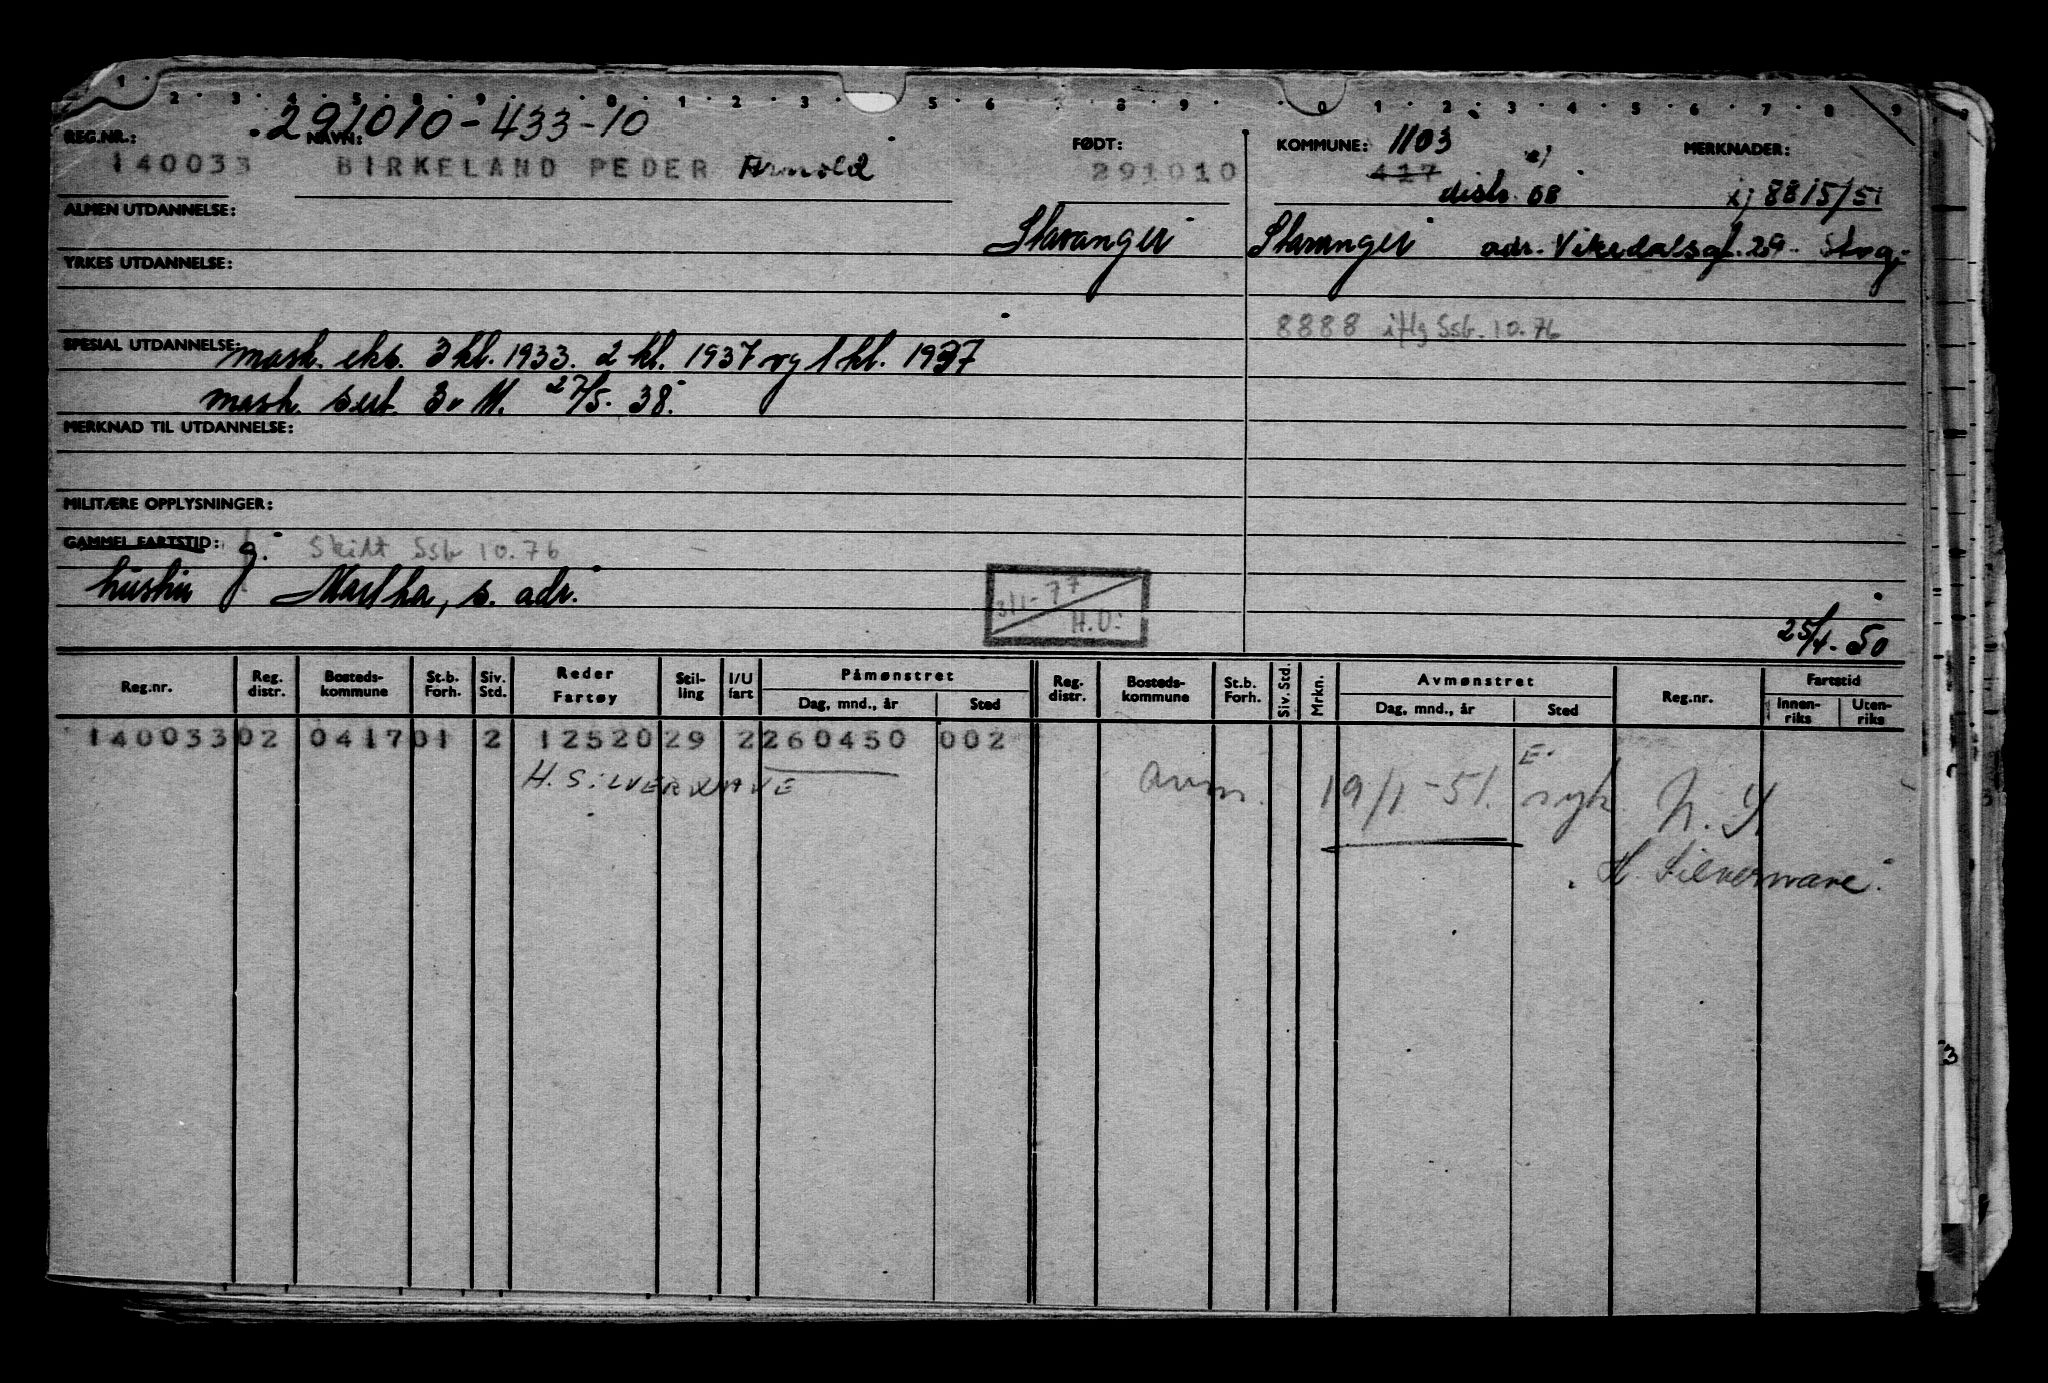 1 2 3 4 5 6 7 8 9 0 1 2 3 5 6 8 9 0 1 2 3 4 5 6 7 8 9
291010-433-10
REG.NR.: NAVN: FØDT: KOMMUNE: 1103 MERKNADER:
140033 BIRKELAND PEDER Arnold 291010 417 distr. 08 x) 8815/51
ALMEN UTDANNELSE:
Stavanger Stavanger adr. Vikedalsgt. 29 Stvg.
YRKES UTDANNELSE:
8888 iflg Ssb. 10.76
SPESIAL UTDANNELSE: mask. eks. 3 kl. 1933. 2 kl. 1937 og 1 kl. 1937
mask. sert. 3. M. 27/5. 38.
MERKNAD TIL UTDANNELSE:
MILITÆRE OPPLYSNINGER:
GAMMEL FARTSTID: g. Skilt Ssb 10.76
hustru Martha, s. adr.
3/1-77 H.O.
25/4-50
Reg.nr. Reg. distr. Bosteds-kommune St.b. Forh. Siv. Std. Reder Fartøy Stil-ling I/U fart Påmønstret Dag, mnd., år Sted Reg. distr. Bosteds-kommune St.b. Forh. Siv. Std. Mrkn. Avmønstret Dag, mnd., år Sted Reg.nr. Fartstid Innen-riks Uten-riks
140033 02 0417 01 2 12520 29 2 260450 002
E.
H. SILVERWAVE avm. 19/1-51. syk N.Y.
H. Silverwave.
3